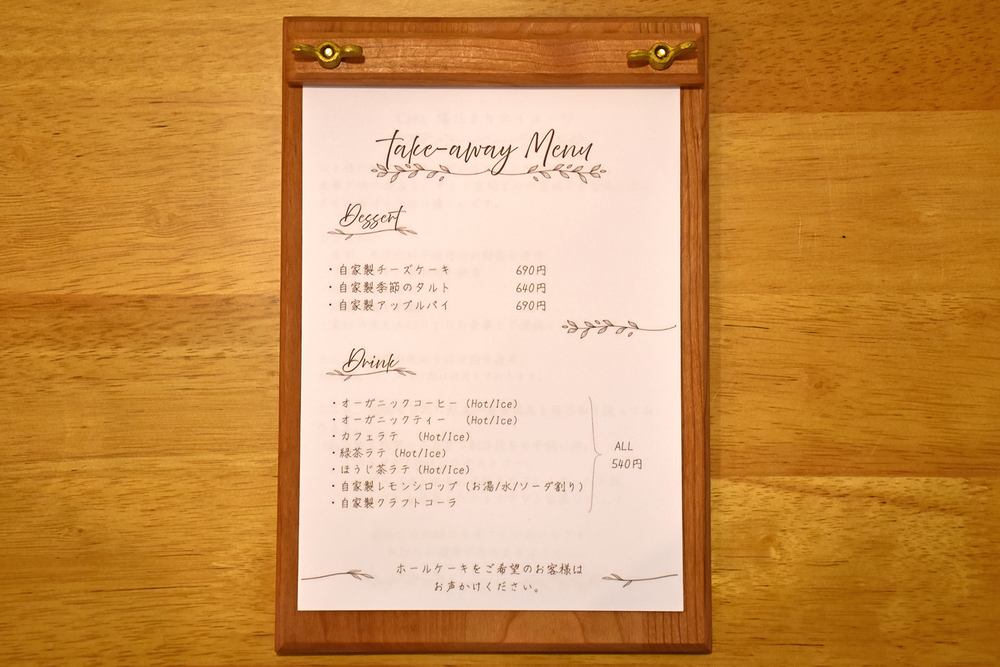 take-away Menu
Dessert
・自家製チーズケーキ 690円
・自家製季節のタルト 640円
・自家製アップルパイ 690円
Drink
・オーガニックコーヒー (Hot/Ice)
・オーガニックティー (Hot/Ice)
・カフェラテ (Hot/Ice)
・緑茶ラテ (Hot/Ice)
・ほうじ茶ラテ (Hot/Ice)
・自家製レモンシロップ (お湯/水/ソーダ割り)
・自家製クラフトコーラ
ALL
540円
ホールケーキをご希望のお客様は
お声かけください。